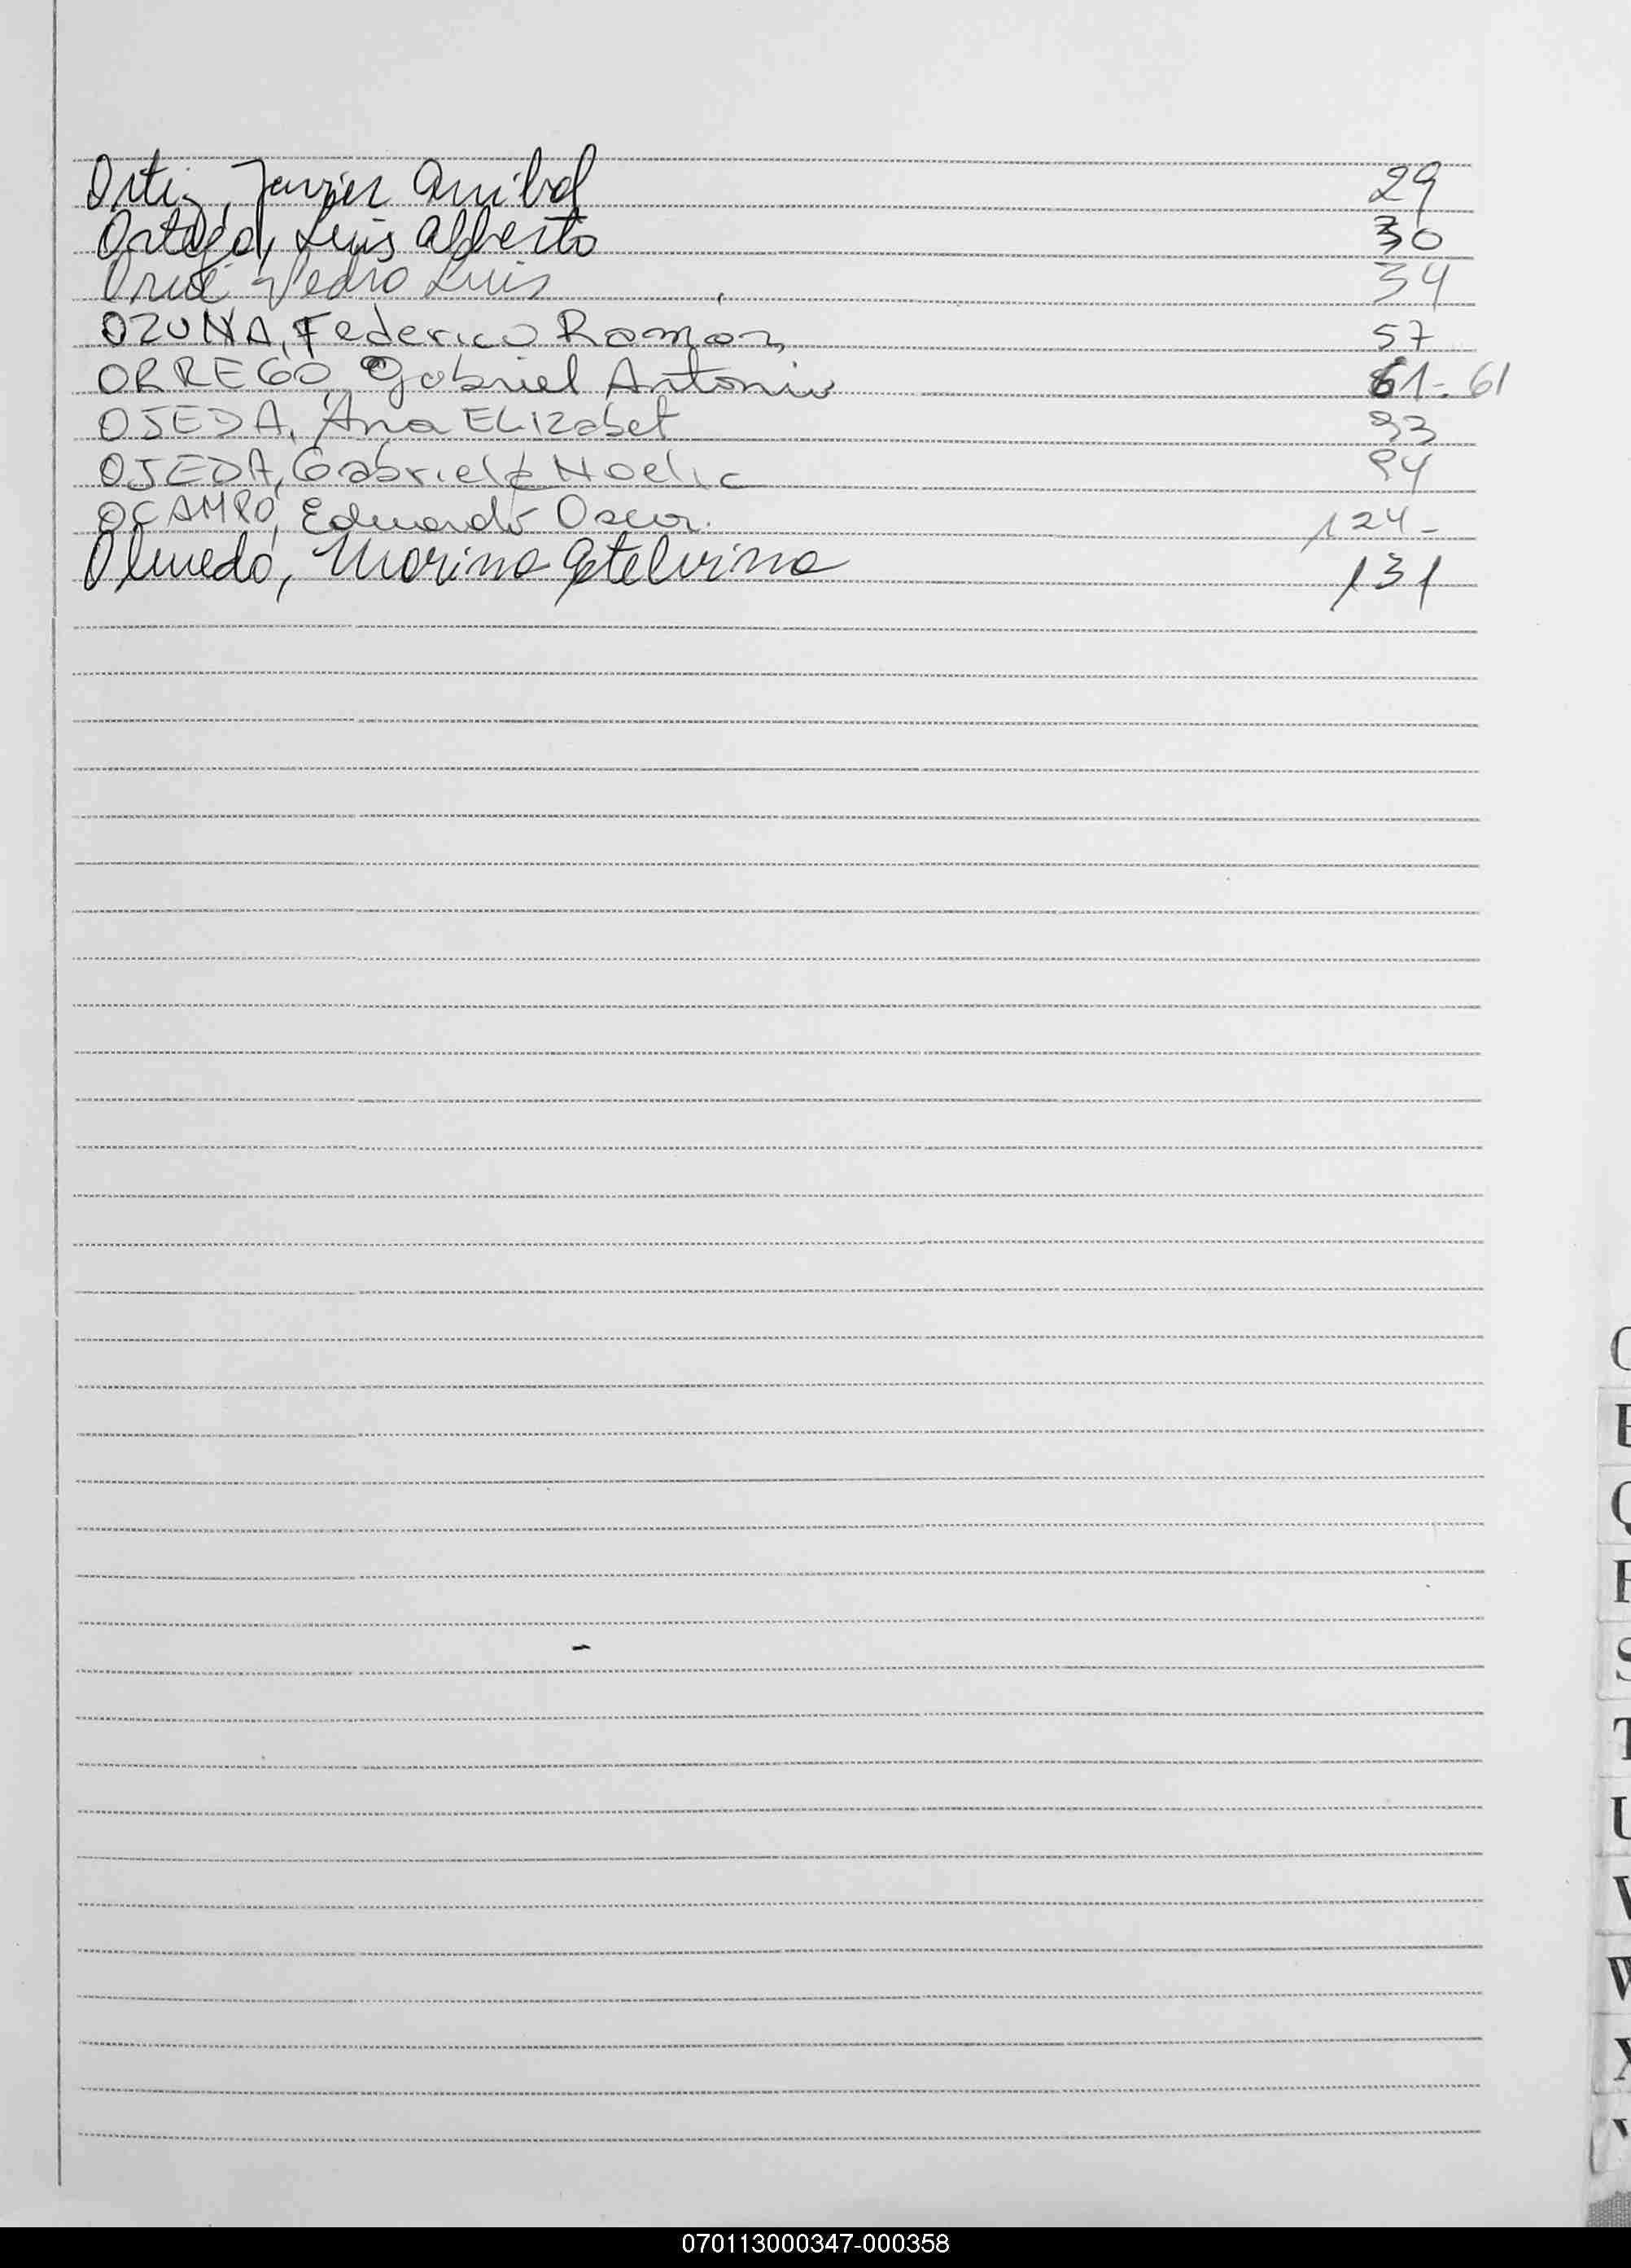 Ortiz, Javier Anibal 29
Ortega, Luis Alberto 30
Orué Pedro Luis 34
OZUNA, Federico Ramón 57
ORREGO, Gabriel Antonio 61-61
OJEDA, Ana ELIZabet 93
OJEDA, Gabriela Noelia 94
OCAMPO, Eduardo Oscar. 124-
Olmedo, Marina Etelvina 131
Q
S
T
U
V
W
X
070113000347-000358